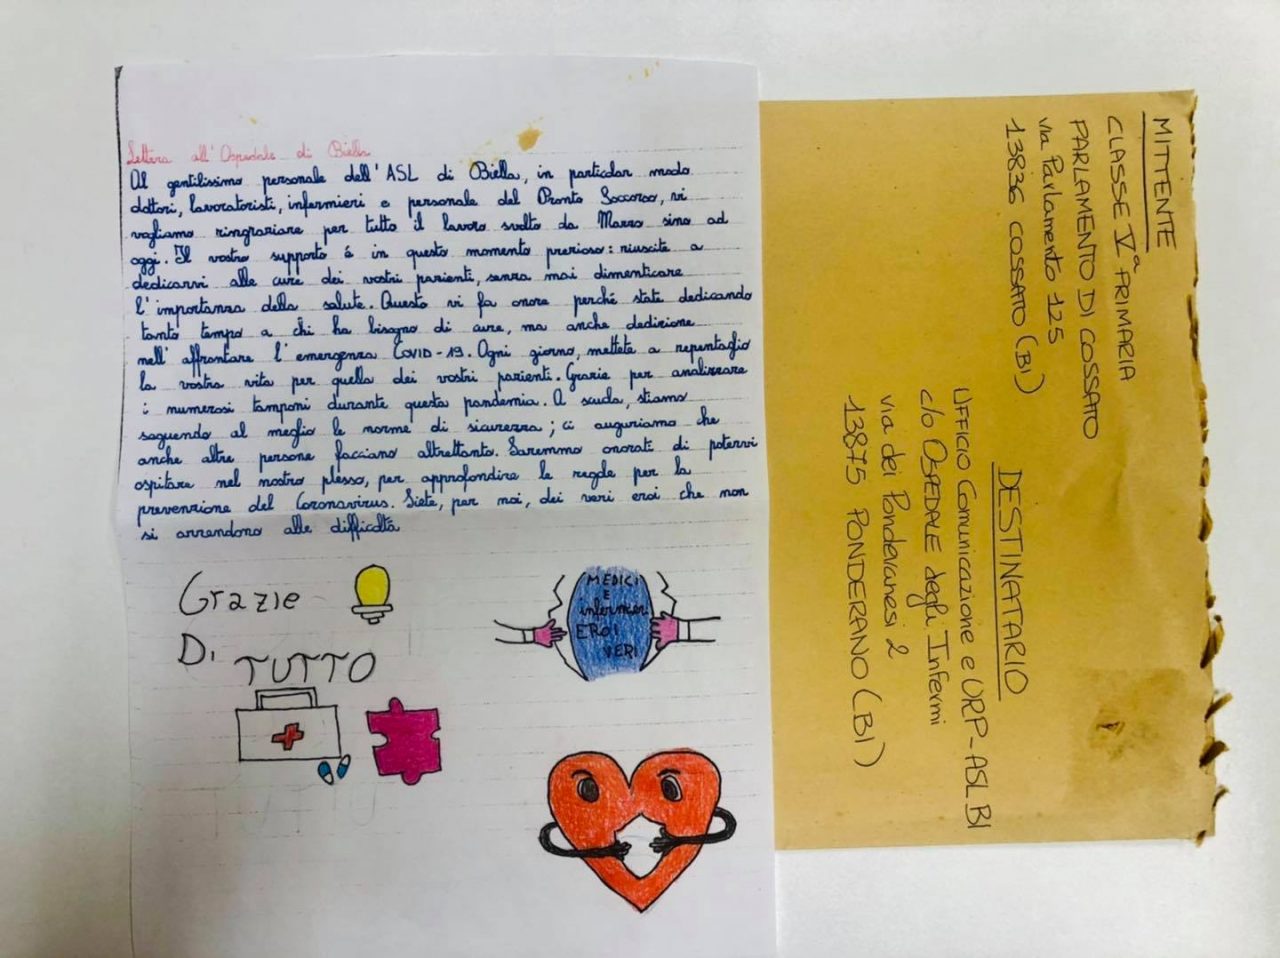 Lettera all'Ospedale di Biella
Al gentilissimo personale dell'ASL di Biella, in particolar modo
dottori, lavoratoristi, infermieri e personale del Pronto Soccorso, vi
vogliamo ringraziare per tutto il lavoro svolto da Marzo sino ad
oggi. Il vostro supporto é in questo momento prezioso: riuscite a
dedicarvi alle cure dei vostri pazienti, senza mai dimenticare
l'importanza della salute. Questo vi fa onore perché state dedicando
tanto tempo a chi ha bisogno di cure, ma anche dedizione
nell'affrontare l'emergenza COVID-19. Ogni giorno, mettete a repentaglio
la vostra vita per quella dei vostri pazienti. Grazie per analizzare
i numerosi tamponi durante questa pandemia. A scuola, stiamo
seguendo al meglio le norme di sicurezza; ci auguriamo che
anche altre persone facciano altrettanto. Saremmo onorati di potervi
ospitare nel nostro plesso, per approfondire le regole per la
prevenzione del Coronavirus. Siete, per noi, dei veri eroi che non
si arrendono alle difficoltà
Grazie
Di
TUTTO
MEDICI
E
infermieri
EROI
VERI
MITTENTE
CLASSE Vª PRIMARIA
PARLAMENTO DI COSSATO
via Parlamento 125
13836 COSSATO (BI)
DESTINATARIO
UFFICIO Comunicazione e URP-ASL BI
c/o OSPEDALE degli Infermi
via dei Ponderanesi 2
13875 PONDERANO (BI)